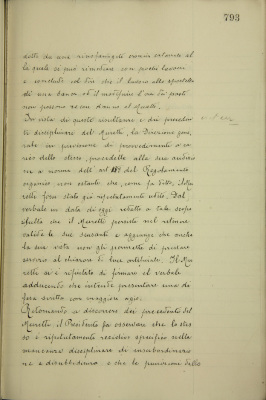 793
detti da una
la quale si può rimediare con pochi lavori
e conclude col dire che il lavoro allo sportello
di una banca ed il modificato d'età da parti
non possono recar danno al Moretti.
In vista di queste risultanze e dei precedenti
disciplinari del Moretti, la Direzione gene
rale in previsione di provvedimenti a ca
rico dello stesso, procedette alla sua audizio
ne a norma dell'art. 114 del Regolamento
organico non ostante che, come fu detto, il Mo
retti fosse stato già ripetutamente udito. Dal
verbale in data di oggi redatto a tale scopo
risulta che il Moretti persiste nel ritenere
valide le sue scusanti e aggiunge che anche
la sua vista non gli permette di prestare
servizio al chiarore di luce artificiale. Il Mo
retti si è rifiutato di firmare il verbale
adducendo che intende presentare una di
fesa scritta con maggiore agio.
Ritornando a discorrere dei precedenti del
Moretti il Presidente fa osservare che lo stes
so è ripetutamente recidivo specifico nelle
mancanze disciplinari di insubordinazio
ne e disubbidienza e che la punizione della